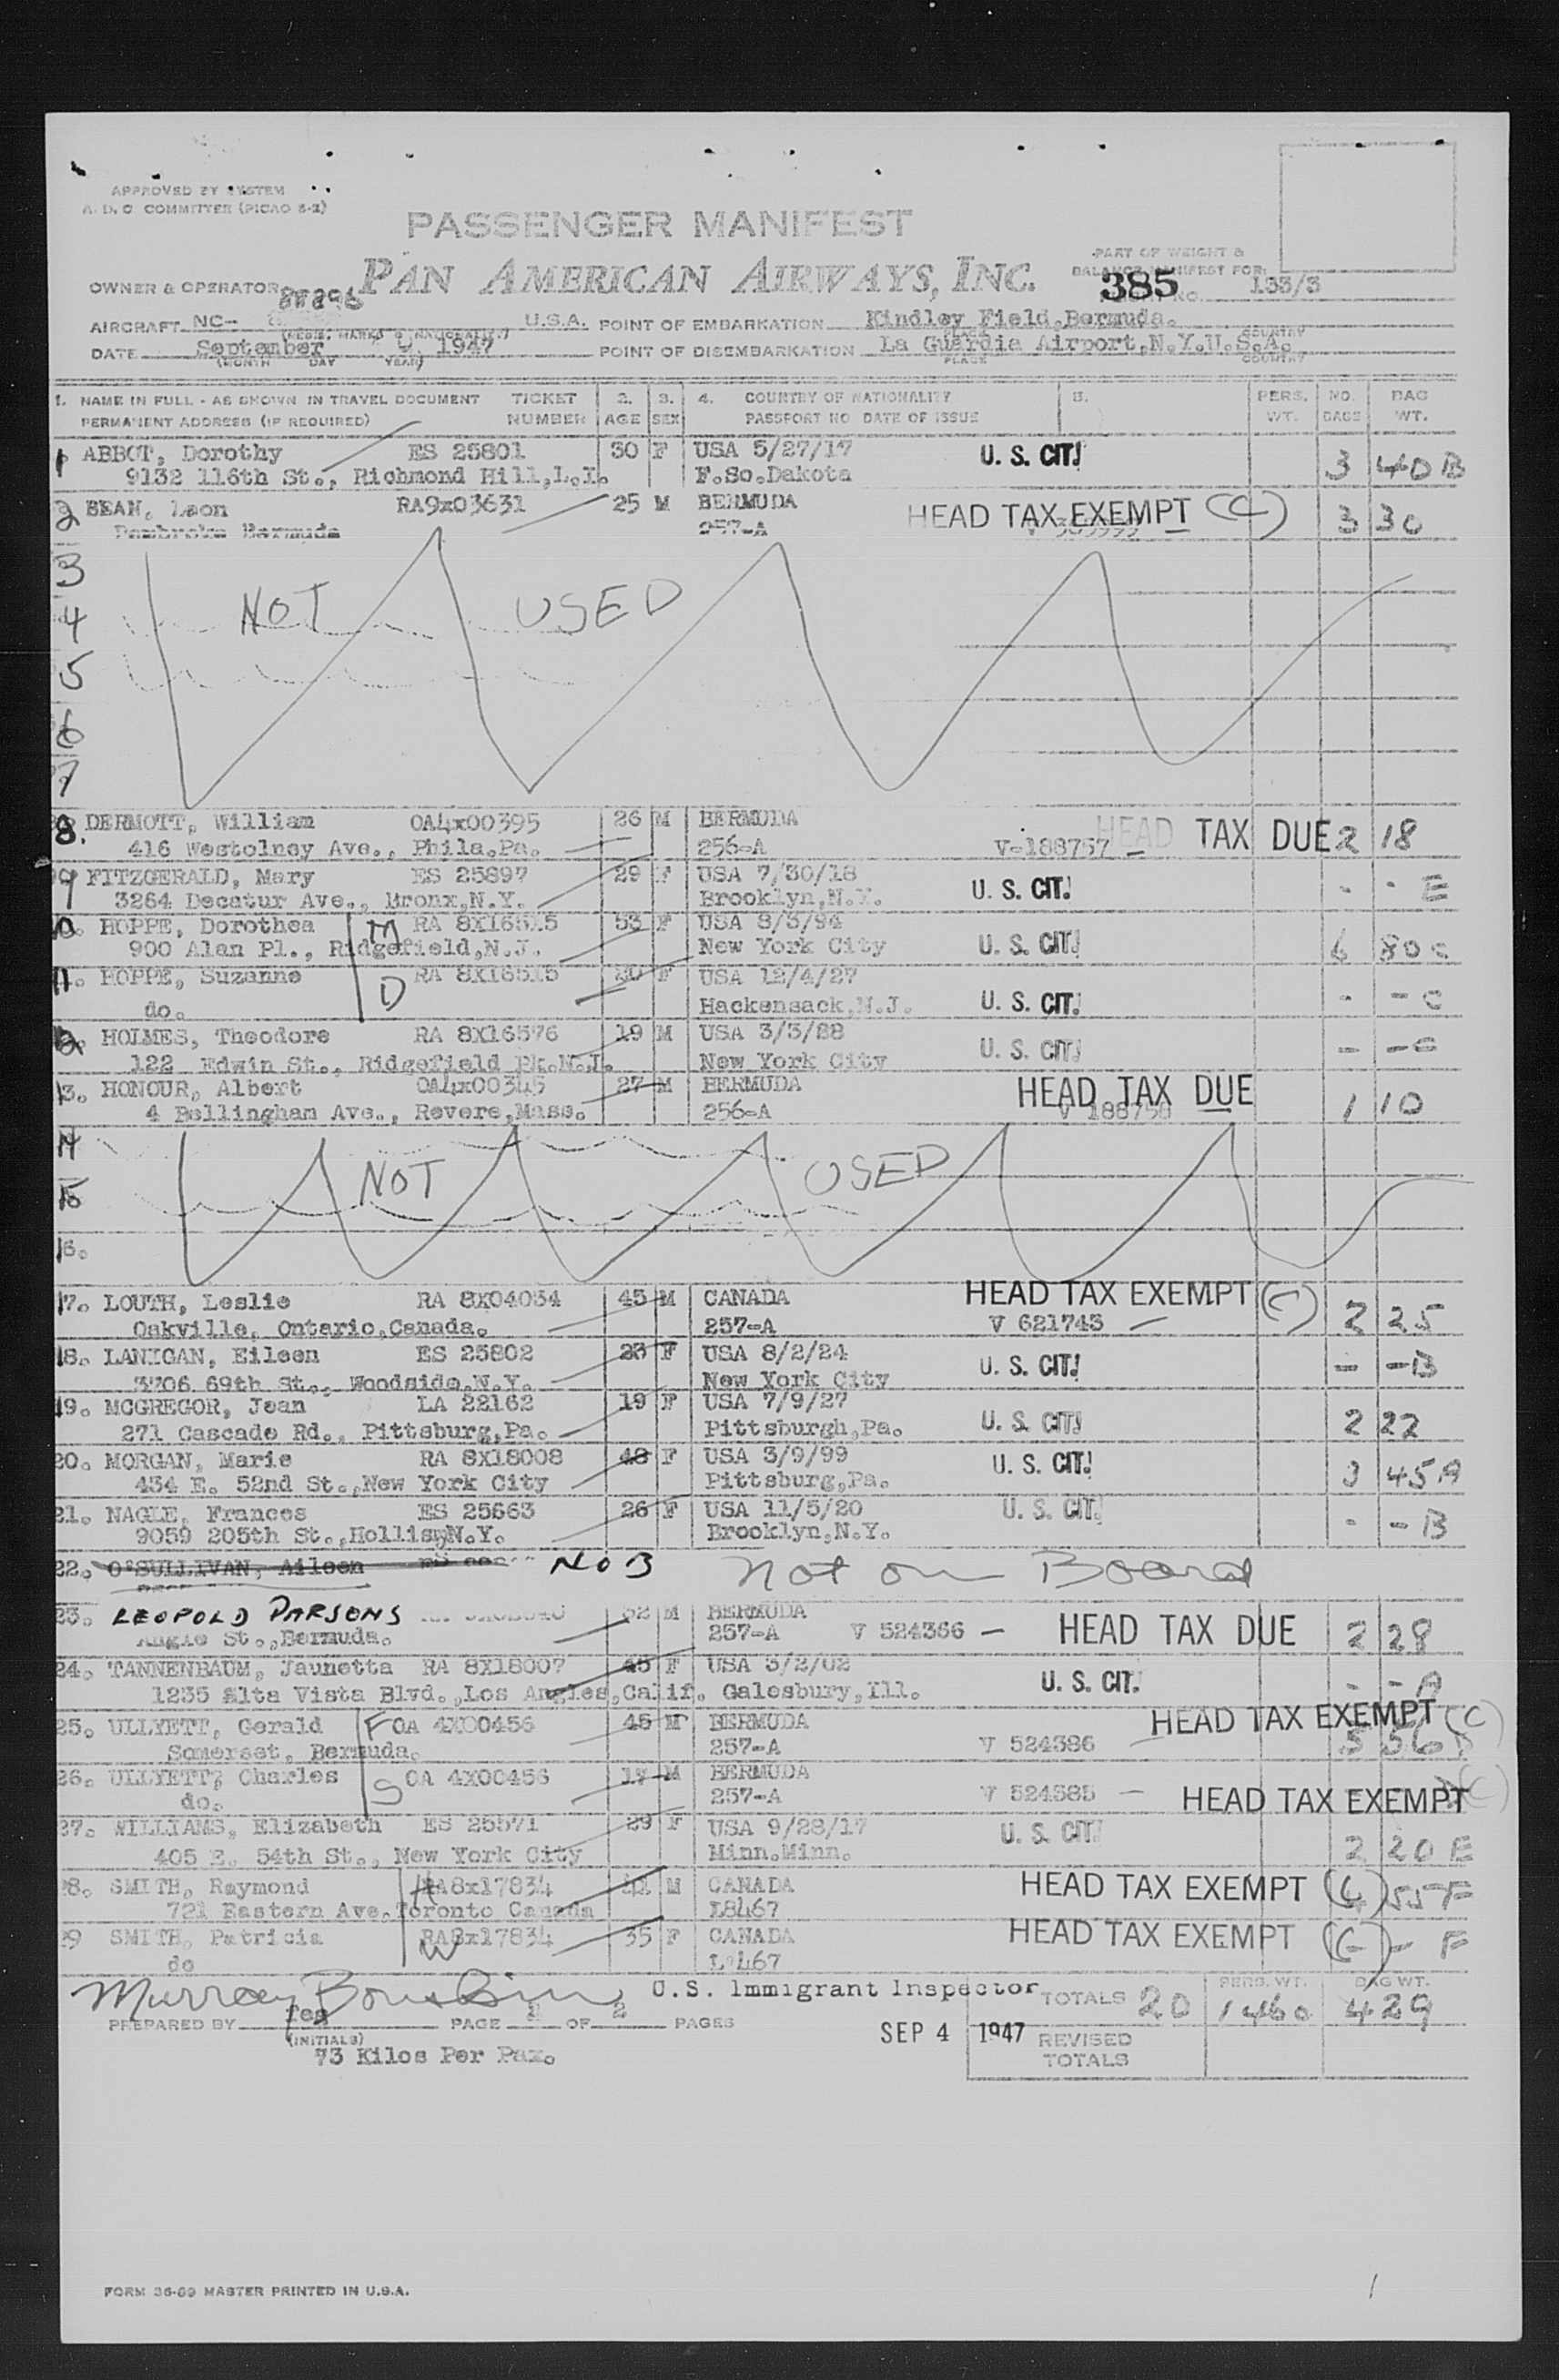 APPROVED BY SYSTEM
A. D. C. COMMITTEE (PICAO 5-2)
PASSENGER MANIFEST
PART OF WEIGHT &
BALANCE MANIFEST FOR
OWNER & OPERATOR PAN AMERICAN AIRWAYS, INC. 385 NO. 133/3
88896
AIRCRAFT NC- U.S.A. POINT OF EMBARKATION Kindley Field, Bermuda.
DATE September 1947 POINT OF DISEMBARKATION La Guardia Airport, N.Y.U.S.A.
(MONTH DAY YEAR) PLACE COUNTRY
1. NAME IN FULL - AS SHOWN IN TRAVEL DOCUMENT TICKET 2. 3. 4. COUNTRY OF NATIONALITY 5. PERS. NO. BAG
PERMANENT ADDRESS (IF REQUIRED) NUMBER AGE SEX PASSPORT NO DATE OF ISSUE WT. BAGS WT.
1 ABBOT, Dorothy ES 25801 30 F USA 5/27/17 U. S. CIT.
9132 116th St., Richmond Hill,L.I. F.So.Dakota 3 40 B
2 BEAN, Leon RA9x03631 25 M BERMUDA HEAD TAX EXEMPT (C) 3 30
Pembroke Bermuda 257-A
3
4 NOT USED
5
6
7
8. DERMOTT, William OA4x00395 26 M BERMUDA HEAD TAX DUE 2 18
416 Westolney Ave., Phila.Pa. 256-A V-188757
9 FITZGERALD, Mary ES 25897 29 F USA 7/30/18 U. S. CIT. - - E
3264 Decatur Ave., Bronx,N.Y. Brooklyn,N.Y.
10. HOPPE, Dorothea M RA 8X16515 53 F USA 8/3/94
900 Alan Pl., Ridgefield,N.J. New York City U. S. CIT. 6 80 C
11. HOPPE, Suzanne RA 8X16515 F USA 12/4/27
do. D Hackensack,N.J. U. S. CIT. - - C
12. HOLMES, Theodore RA 8X16576 19 M USA 3/3/28
122 Edwin St., Ridgefield Pk.N.J. New York City U. S. CIT. - - C
13. HONOUR, Albert OA4x00345 27 M BERMUDA HEAD TAX DUE
4 Bellingham Ave., Revere,Mass. 256-A V 188758 1 10
14
15 NOT USED
16.
17. LOUTH, Leslie RA 8X04034 45 M CANADA HEAD TAX EXEMPT (C) 2 25
Oakville, Ontario,Canada. 257-A V 621743
18. LANIGAN, Eileen ES 25802 23 F USA 8/2/24 U. S. CIT. - - B
3706 69th St., Woodside,N.Y. New York City
19. MCGREGOR, Jean LA 22162 19 F USA 7/9/27
271 Cascade Rd., Pittsburg,Pa. Pittsburgh,Pa. U. S. CIT. 2 22
20. MORGAN, Marie RA 8X18008 48 F USA 3/9/99
434 E. 52nd St.,New York City Pittsburg,Pa. U. S. CIT. 3 45 A
21. NAGLE, Frances ES 25663 26 F USA 11/5/20 U. S. CIT.
9059 205th St.,Hollis,N.Y. Brooklyn,N.Y. - - B
22. O'SULLIVAN, Aileen ES NOB not on Board
23. LEOPOLD PARSONS 32 M BERMUDA
Angle St.,Bermuda. 257-A V 524366 — HEAD TAX DUE 2 28
24. TANNENBAUM, Jaunetta RA 8X18007 45 F USA 3/2/02 U. S. CIT.
1235 Alta Vista Blvd.,Los Angles,Calif. Galesbury,Ill. - - A
25. ULLYETT, Gerald F OA 4X00456 45 M BERMUDA HEAD TAX EXEMPT (C)
Somerset, Bermuda. 257-A V 524386 5 56
26. ULLYETT, Charles S OA 4X00456 M BERMUDA
do. 257-A V 524385 — HEAD TAX EXEMPT (C)
27. WILLIAMS, Elizabeth ES 25571 29 F USA 9/28/17 U. S. CIT.
405 E. 54th St., New York City Minn.Minn. 2 20 E
28. SMITH, Raymond H RA8x17834 M CANADA HEAD TAX EXEMPT (C) 55 F
721 Eastern Ave.Toronto Canada L8467
29 SMITH, Patricia W RA8x17834 35 F CANADA HEAD TAX EXEMPT (C) - F
do L8467
U.S. Immigrant Inspector TOTALS 20 PERS. WT. 1460 BAG WT. 429
PREPARED BY PAGE OF 2 PAGES SEP 4 1947 REVISED
(INITIALS) TOTALS
73 Kilos Per Pax.
FORM 36-69 MASTER PRINTED IN U.S.A.